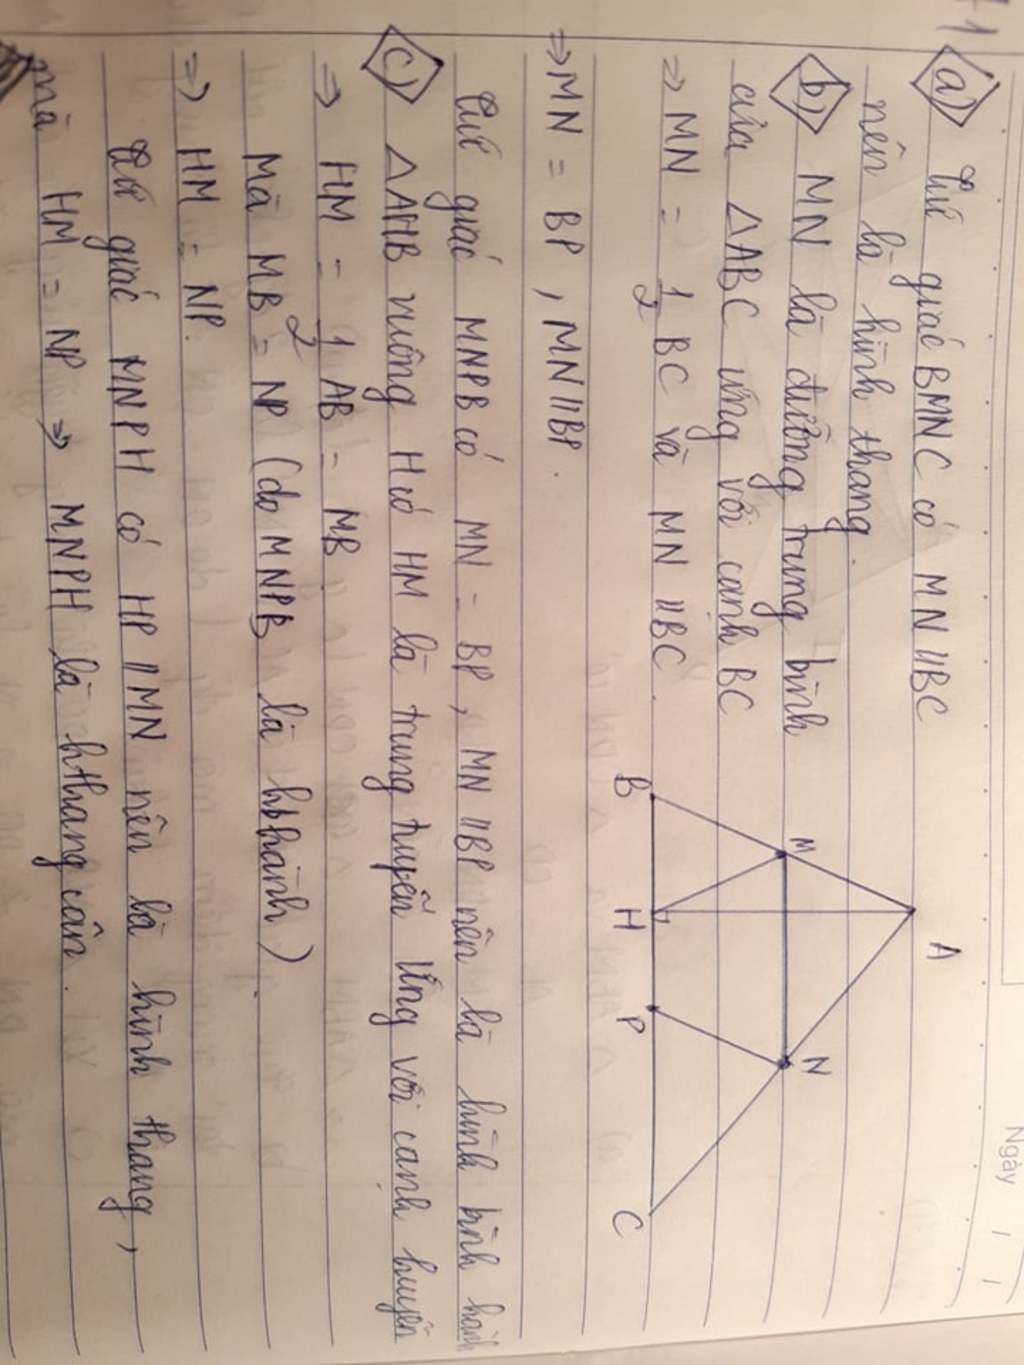 Ngày / /
a) Tứ giác BMNC có MN // BC
nên là hình thang.
b) MN là đường trung bình
của △ABC ứng với cạnh BC
⇒ MN = 1/2 BC và MN // BC.
A
M
N
B
H
P
C
⇒ MN = BP, MN // BP.
Tứ giác MNPB có MN = BP, MN // BP nên là hình bình hành
c) △AHB vuông H có HM là trung tuyến ứng với cạnh huyền
⇒ HM = 1/2 AB = MB
Mà MB = NP (do MNPB là hbhành)
⇒ HM = NP.
Tứ giác MNPH có HP // MN nên là hình thang,
mà HM = NP ⇒ MNPH là hthang cân.